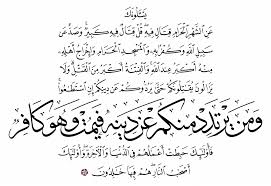 يَسْـَٔلُونَكَ
عَنِ ٱلشَّهْرِ ٱلْحَرَامِ قِتَالٍ فِيهِ قُلْ قِتَالٌ فِيهِ كَبِيرٌ وَصَدٌّ عَن
سَبِيلِ ٱللَّهِ وَكُفْرٌۢ بِهِۦ وَٱلْمَسْجِدِ ٱلْحَرَامِ وَإِخْرَاجُ أَهْلِهِۦ
مِنْهُ أَكْبَرُ عِندَ ٱللَّهِ وَٱلْفِتْنَةُ أَكْبَرُ مِنَ ٱلْقَتْلِ وَلَا
يَزَالُونَ يُقَٰتِلُونَكُمْ حَتَّىٰ يَرُدُّوكُمْ عَن دِينِكُمْ إِنِ ٱسْتَطَٰعُوا۟
وَمَن يَرْتَدِدْ مِنكُمْ عَن دِينِهِۦ فَيَمُتْ وَهُوَ كَافِرٌ
فَأُو۟لَٰٓئِكَ حَبِطَتْ أَعْمَٰلُهُمْ فِى ٱلدُّنْيَا وَٱلْءَاخِرَةِ وَأُو۟لَٰٓئِكَ
أَصْحَٰبُ ٱلنَّارِ هُمْ فِيهَا خَٰلِدُونَ